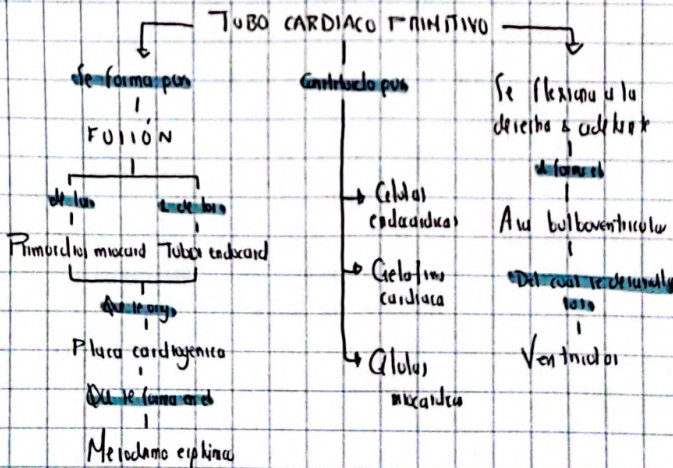 TUBO CARDIACO PRIMITIVO
Se forma por
FUSIÓN
de los
& de los
Primordios miocard
Tubos endocard
Que se org
Placa cardiogénica
Que se forma en el
Mesodermo esplácnico
Constituido por
Celulas
endocardicas
Gelatina
cardiaca
Células
miocardicas
Se flexiona a la
derecha & adelante
& forma el
Asa bulboventricular
Del cual se desarrolla
los
Ventriculos